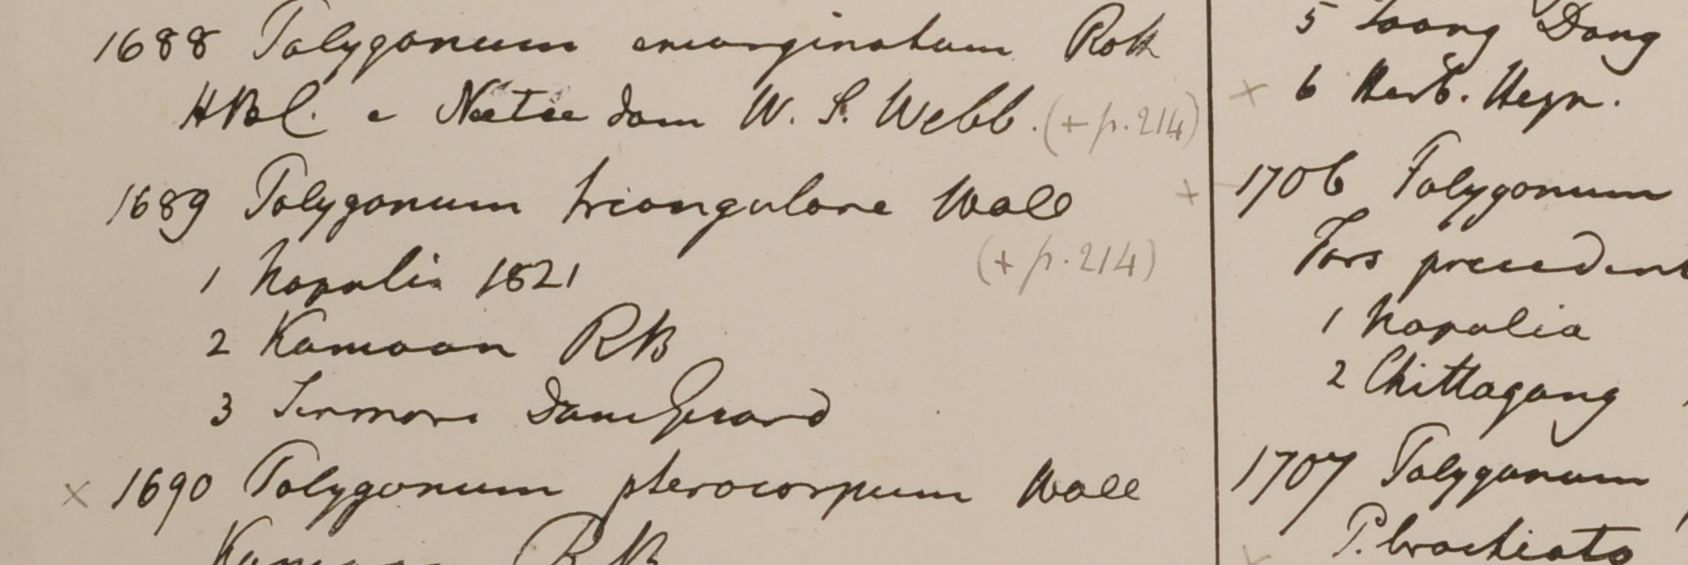 1688 Polygonum emarginatum Roth
HBC. e Neetee dom W. S. Webb. (+ p. 214)
1689 Polygonum triangulare Wall
(+ p. 214)
1 Napalia 1821
2 Kamaon RB
3 Sirmore Dom Gerard
× 1690 Polygonum pterocarpum Wall
Kamaon RB
5 Toong Dong
× 6 Herb. Heyn.
+ 1706 Polygonum
Fors precedent
1 Napalia
2 Chittagong
1707 Polygonum
P. brachiata